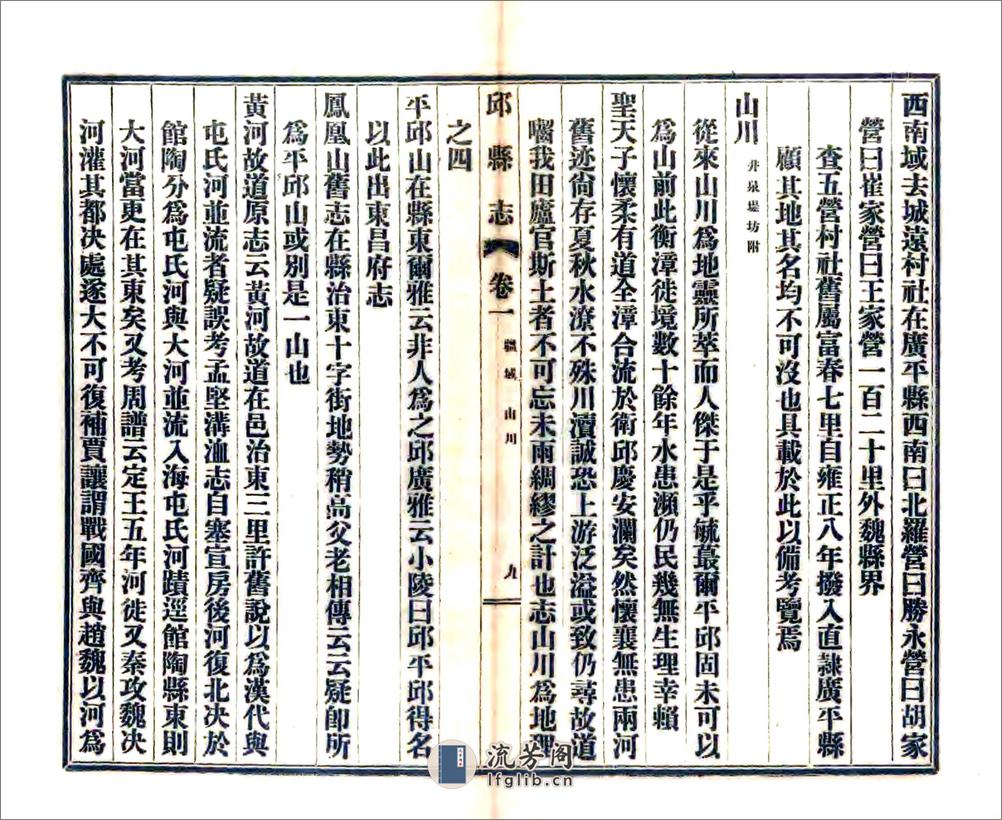 西南域去城遠村社在廣平縣西南曰北羅營曰勝永營曰胡家
營曰崔家營曰王家營一百二十里外魏縣界
查五營村社舊屬富春七里自雍正八年撥入直隸廣平縣
願其地其名均不可沒也具載於此以備考覽焉
山川 井泉堤坊附
從來山川為地靈所萃而人傑于是乎毓蕞爾平邱固未可以
為山前此衡漳徙境數十餘年水患瀕仍民幾無生理幸賴
聖天子懷柔有道全漳合流於衛邱慶安瀾矣然懷襄無患兩河
舊迹尚存夏秋水潦不殊川瀆誠恐上游泛溢或致仍尋故道
囓我田廬官斯土者不可忘未雨綢繆之計也志山川為地理
之四
邱縣志 卷一 疆域 山川 九
平邱山在縣東爾雅云非人為之邱廣雅云小陵曰邱平邱得名
以此出東昌府志
鳳凰山舊志在縣治東十字街地勢稍高父老相傳云云疑即所
為平邱山或別是一山也
黃河故道原志云黃河故道在邑治東三里許舊說以為漢代與
屯氏河並流者疑誤考孟堅溝洫志自塞宣房後河復北决於
館陶分為屯氏河與大河並流入海屯氏河蹟逕館陶縣東則
大河當更在其東矣又考周譜云定王五年河徙又秦攻魏决
河灌其都决處遂大不可復補賈讓謂戰國齊與趙魏以河為
流芳阁
lfglib.cn